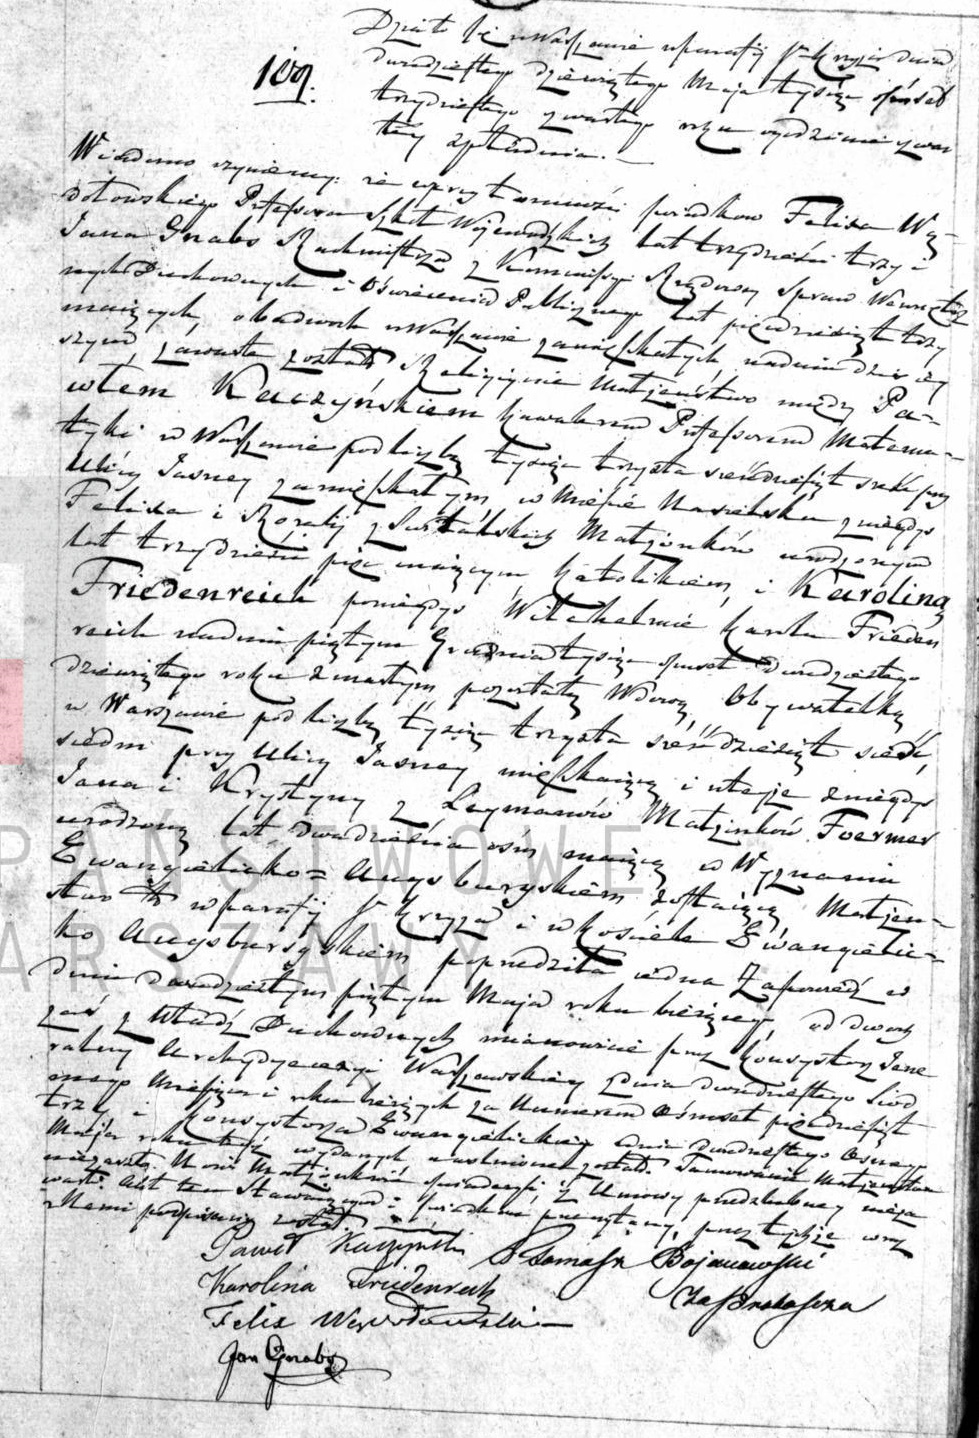 Działo się w Warszawie w parafij Sgo Krzyża dnia
dwudziestego dziewiątego Maja tysiąc ośmset
109.
trzydziestego czwartego roku o godzinie czwar
tey z południa. —
Wiadomo czyniemy: że w przytomności świadkow Felixa Wy-
Professora Szkół Wojewódzkich lat trzydzieści trzy i
Jana Grabs Rachmistrza z Kommissyi Rządowey Spraw Wewnętrz
nych Duchownych i Oświecenia Publicznego lat pięćdziesiąt trzy
maiących, obudwoch w Warszawie zamieszkałych, na dniu dzisiey
szym zawarte zostało Religijne Małżeństwo między Pa-
włem Kaczyńskiem kawalerem Professorem Matema-
tyki w Warszawie pod liczbą tysiąc trzysta sześćdziesiąt sześć przy
Ulicy Jasney zamieszkałym, w Mieście Nasielsku z niegdy
Felixa i Rozalij z Małżonków urodzonym
lat trzydzieści pięć maiącym Katolikiem, i Karoliną
Friedenreich po niegdy Wilchelmie Karolu Frieden
reich na dniu piątym Grudnia tysiąc ośmset dwudziestego
dziewiątego roku zmarłym pozostałą Wdową, Obywatelką
w Warszawie pod liczbą tysiąc trzysta sześćdziesiąt sześć,
siedm przy Ulicy Jasney mieszkaiącą i utaje z niegdy
Jana i Krystyny z Leymanów Małżonków Foermer
urodzoną lat dwadzieścia ośm maiącą w Wyznaniu
Ewangielicko = Augsburyskiem zostaiącą. Małżeń-
stwo to w parafij Sgo Krzyża i w Kościele Ewangielic-
ko Augsburgskiem poprzedziła iedna Zapowiedź w
dniu dwudziestym piątym Maja roku bieżącego, od dwóch
zaś z Władz Duchownych mianowicie przez Konsystorz Jene
ralny Archydyecezyi Warszawskiey dnia dwudziestego Siód
mego Miesiąca i roku bieżących za Numerem Ośmset pięćdziesiąt
trzy i Konsystorza Ewangielickiego dnia dwudziestego Osmego
Maja roku tegoż wydanych uwolnione zostało. Tamowanie Małżeństwa
nie zaszło. Nowi Małżonkowie oświadczyli, iż Umowy przedślubney nieza
warli. Akt ten Stawaiącym i świadkom przeczytany, przez tychże wraz
z Nami podpisany został.
Paweł Kaczyński X Tomasz Bojanowski
Karolina Friedenreich
Felix
Jan Grabs